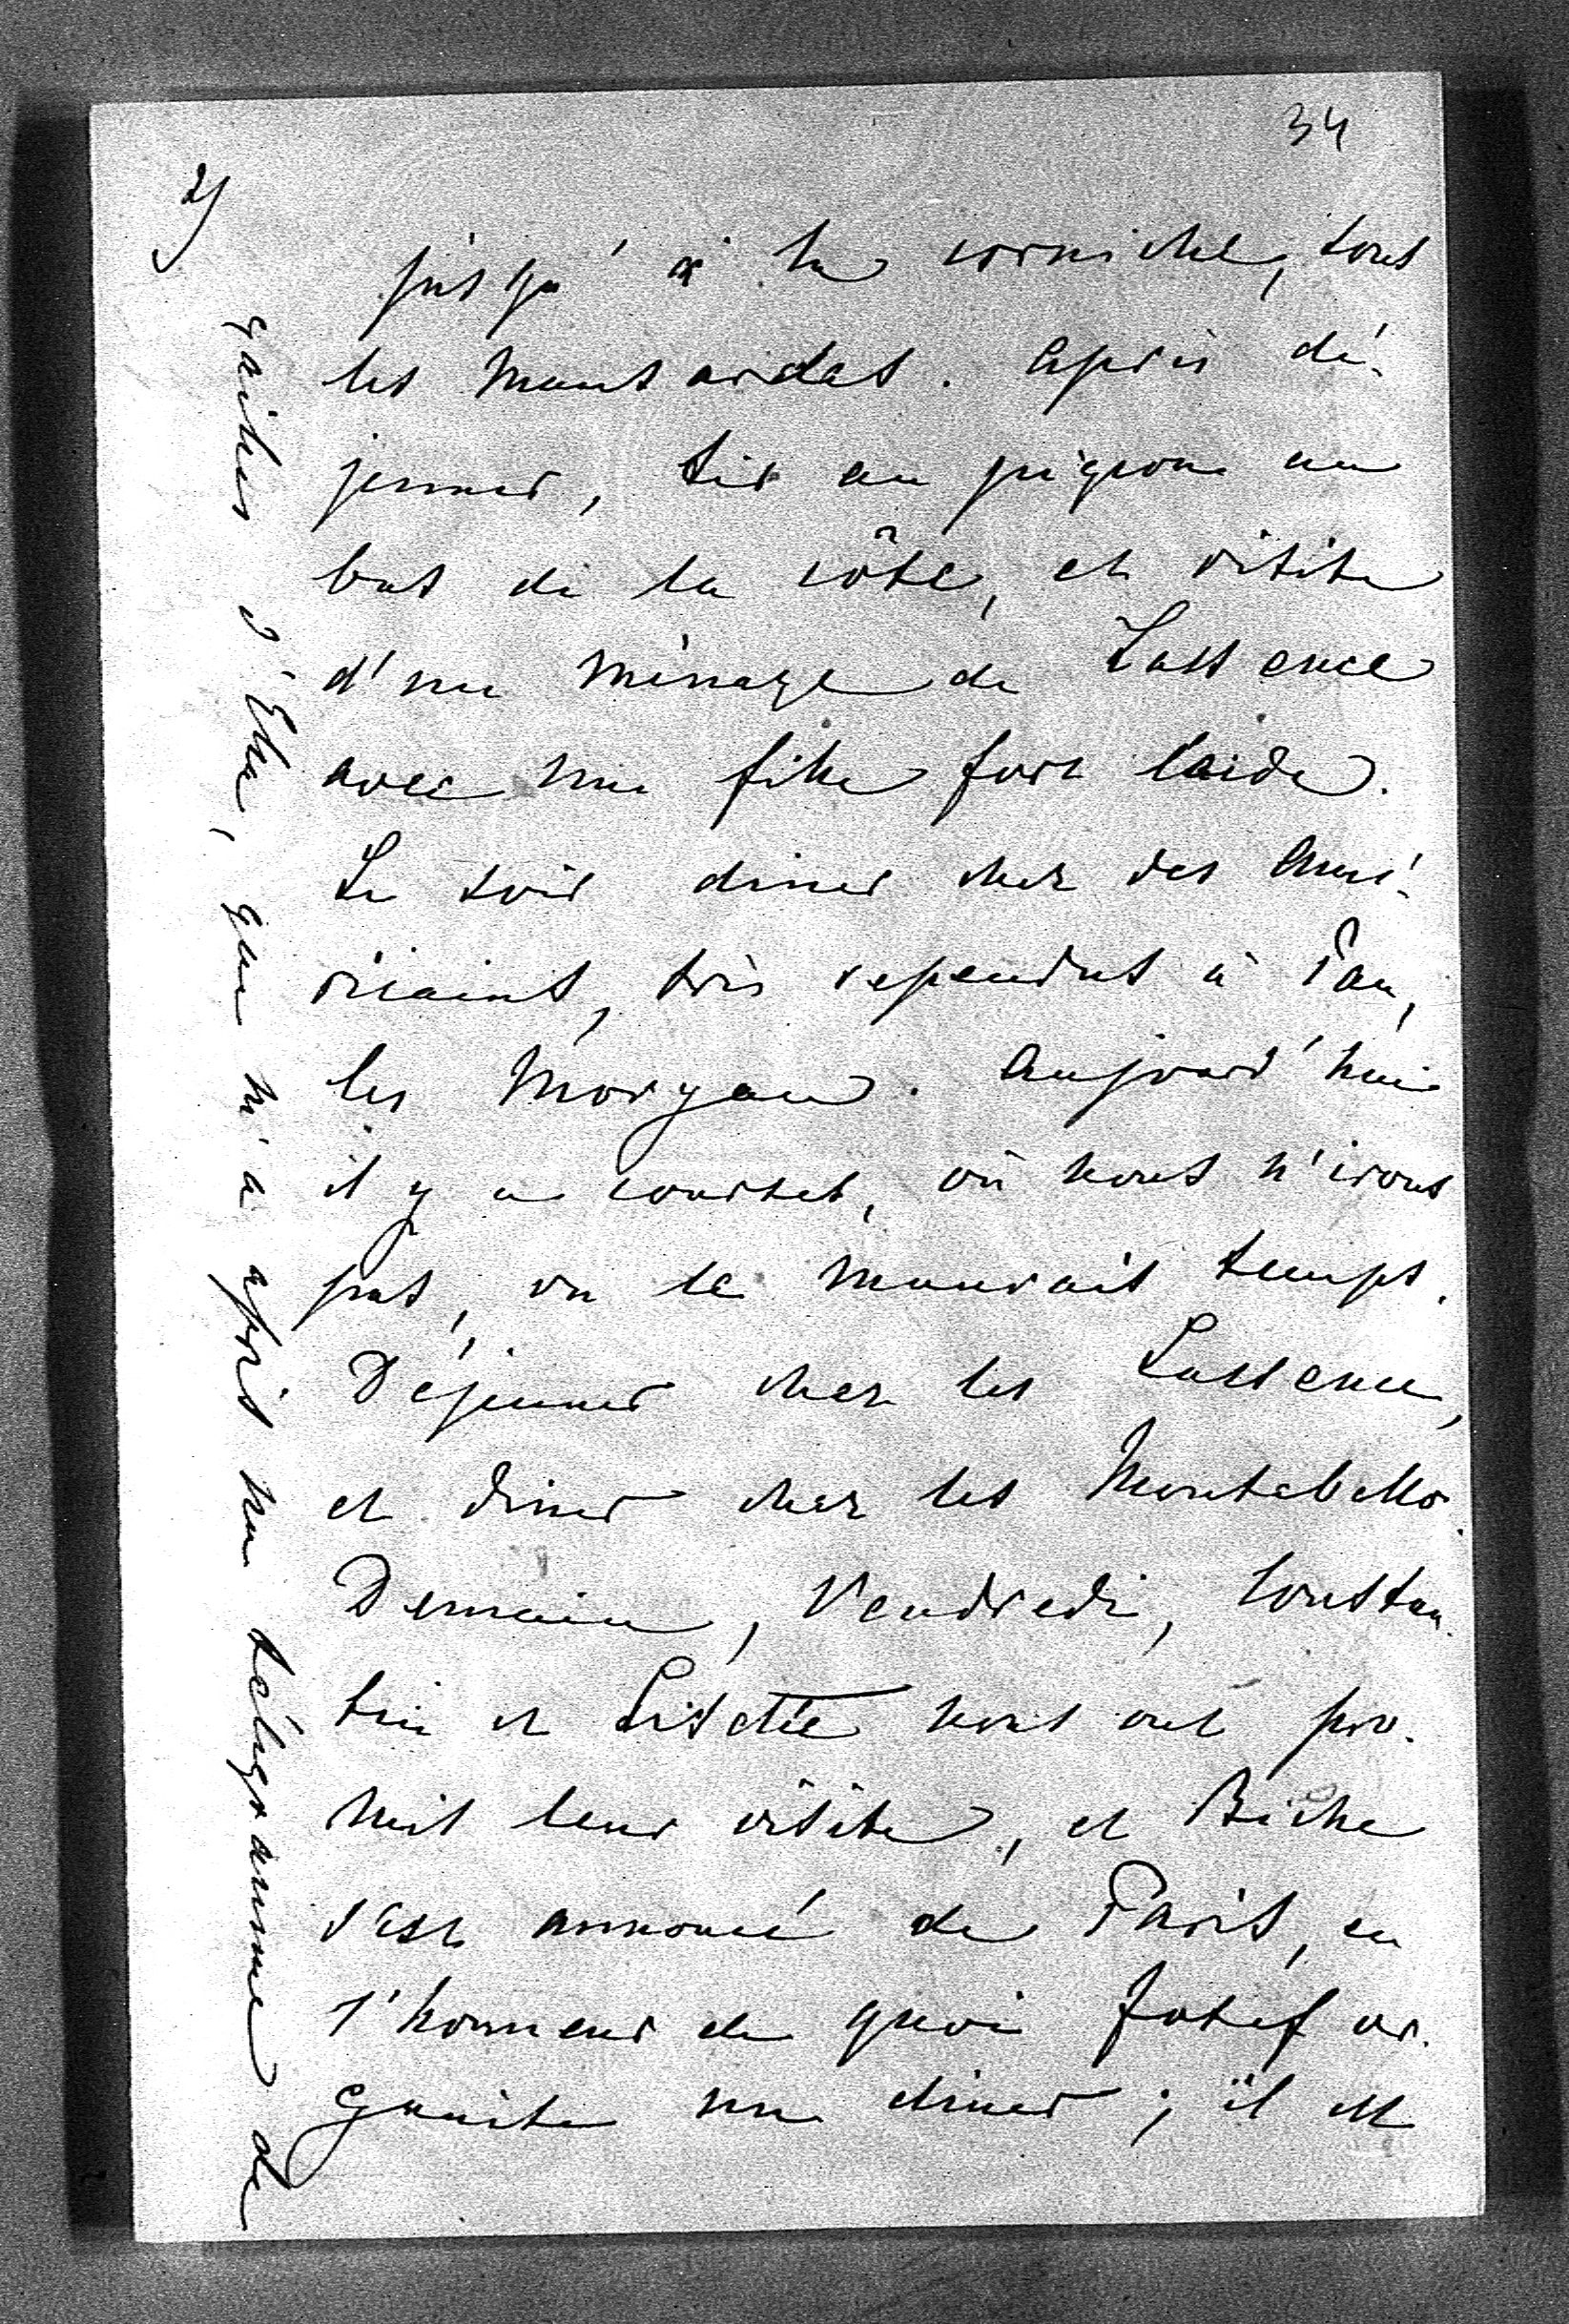 34
2)
jusqu'à la corniche, sous
les mansardes. Après dé-
jeuner, tir au pigeon au
bas de la côte, et visite
d'un ménage de Lassence
avec une fille fort laide.
Le soir diner chez des Amé-
ricains, très rependus à Pau,
les Morgan. Aujourd'hui
il y a courses, où nous n'irons
pas, vu le mauvais temps.
Déjeuner chez les Lassence,
et diner chez les Montebello.
Demain, Vendredi, Constan-
tin et Lisette nous ont pro-
mis leur visite, et Biche
s'est annoncé de Paris, en
l'honneur de quoi Josef or-
ganise un diner; il est
d'Ella, que m'a appris un télégramme de